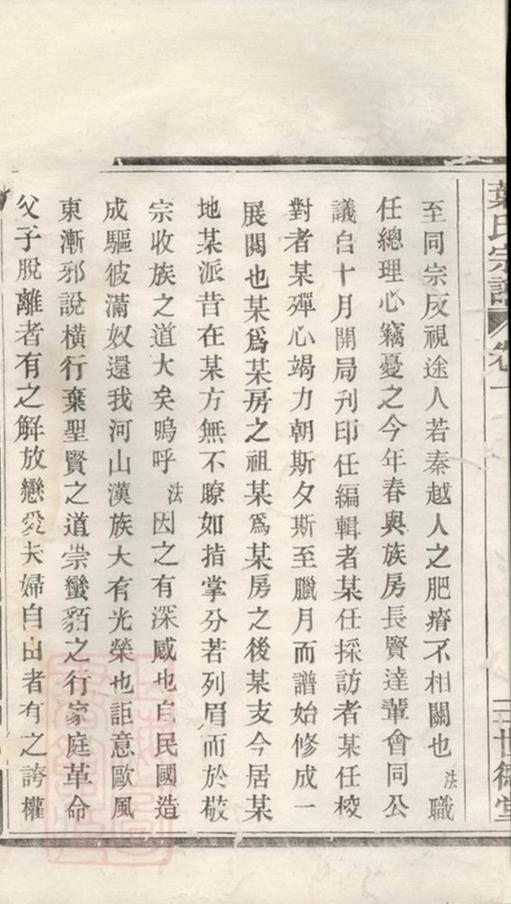 葉氏宗譜 卷一 三 世德堂
至同宗反視途人若秦越人之肥瘠不相關也法職
任總理心竊憂之今年春與族房長賢達輩會同公
議自十月開局刊印任編輯者某任採訪者某任校
對者某殫心竭力朝斯夕斯至臘月而譜始修成一
展閱也某爲某房之祖某爲某房之後某支今居某
地某派昔在某方無不瞭如指掌分若列眉而於敬
宗收族之道大矣嗚呼法因之有深感也自民國造
成驅彼滿奴還我河山漢族大有光榮也詎意歐風
東漸邪說橫行棄聖賢之道崇蠻貊之行家庭革命
父子脫離者有之解放戀愛夫婦自由者有之誇權